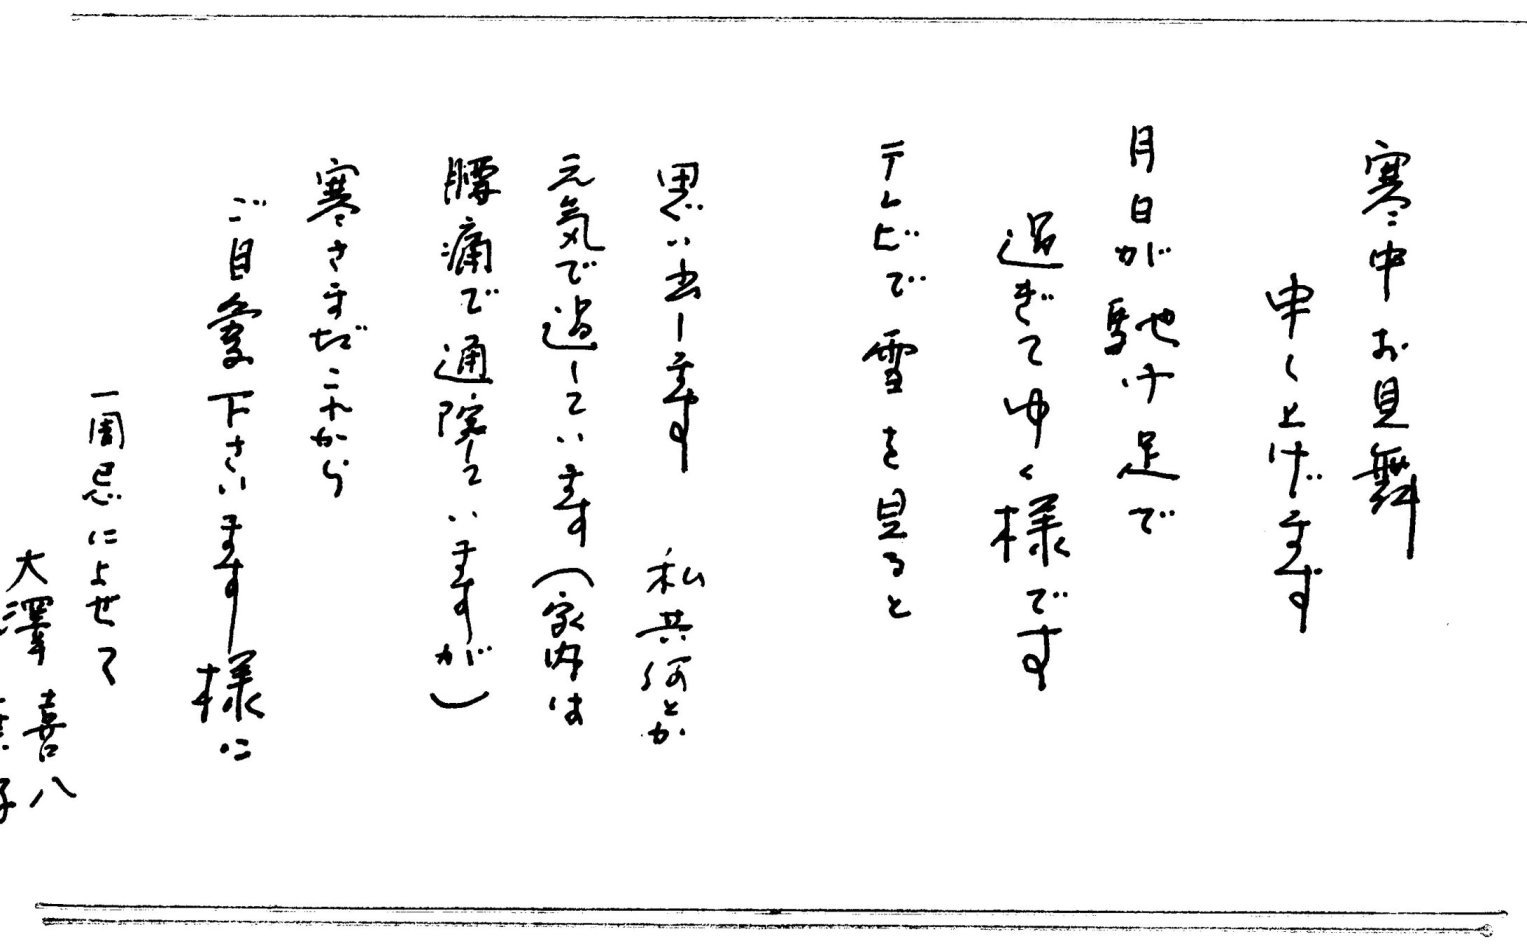 寒中お見舞
申し上げます
月日が馳け足で
過ぎてゆく様です
テレビで雪を見ると
思い出します 私共何とか
元気で過しています(家内は
腰痛で通院していますが)
寒さまだこれから
ご自愛下さいます様に
一周忌によせて
大澤 喜八